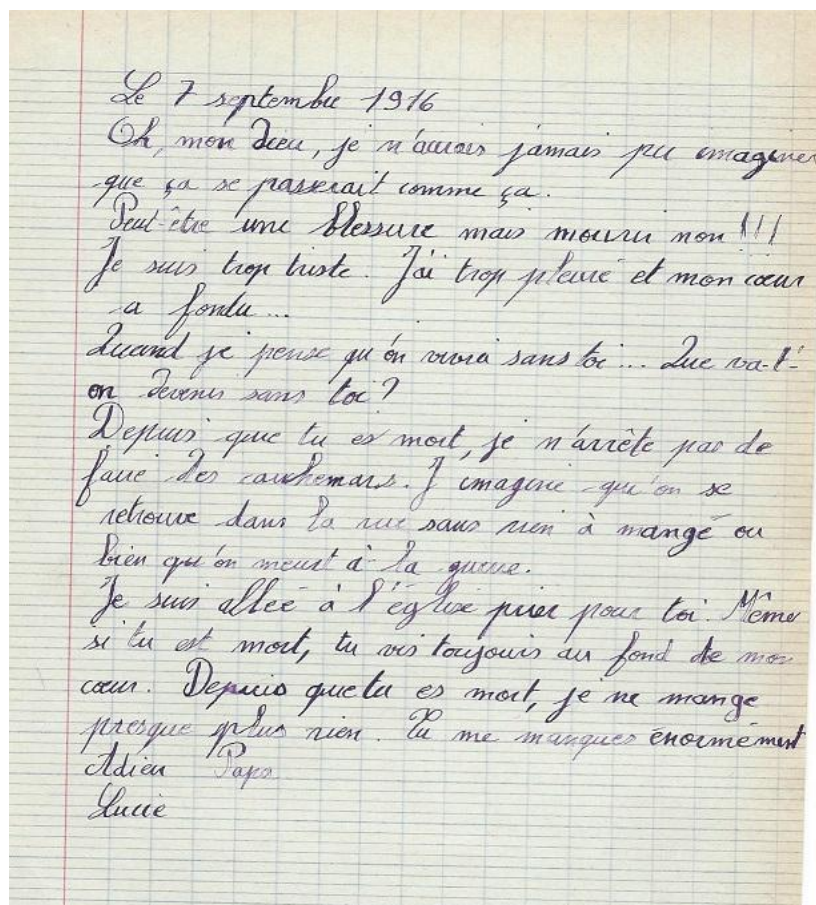 Le 7 septembre 1916
Oh, mon dieu, je n'aurais jamais pu imaginer
que ça se passerait comme ça.
Peut-être une blessure mais mourir non !!!
Je suis trop triste. J'ai trop pleuré et mon cœur
a fondu...
Quand je pense qu'on vivra sans toi... Que va-t'-
on devenir sans toi ?
Depuis que tu es mort, je n'arrête pas de
faire des cauchemars. J'imagine qu'on se
retrouve dans la rue sans rien à mangé ou
bien qu'on meurt à la guerre.
Je suis allée à l'église prier pour toi. Même
si tu est mort, tu vis toujours au fond de mon
cœur. Depuis que tu es mort, je ne mange
presque plus rien. Tu me manques énormément
Adieu Papa
Lucie